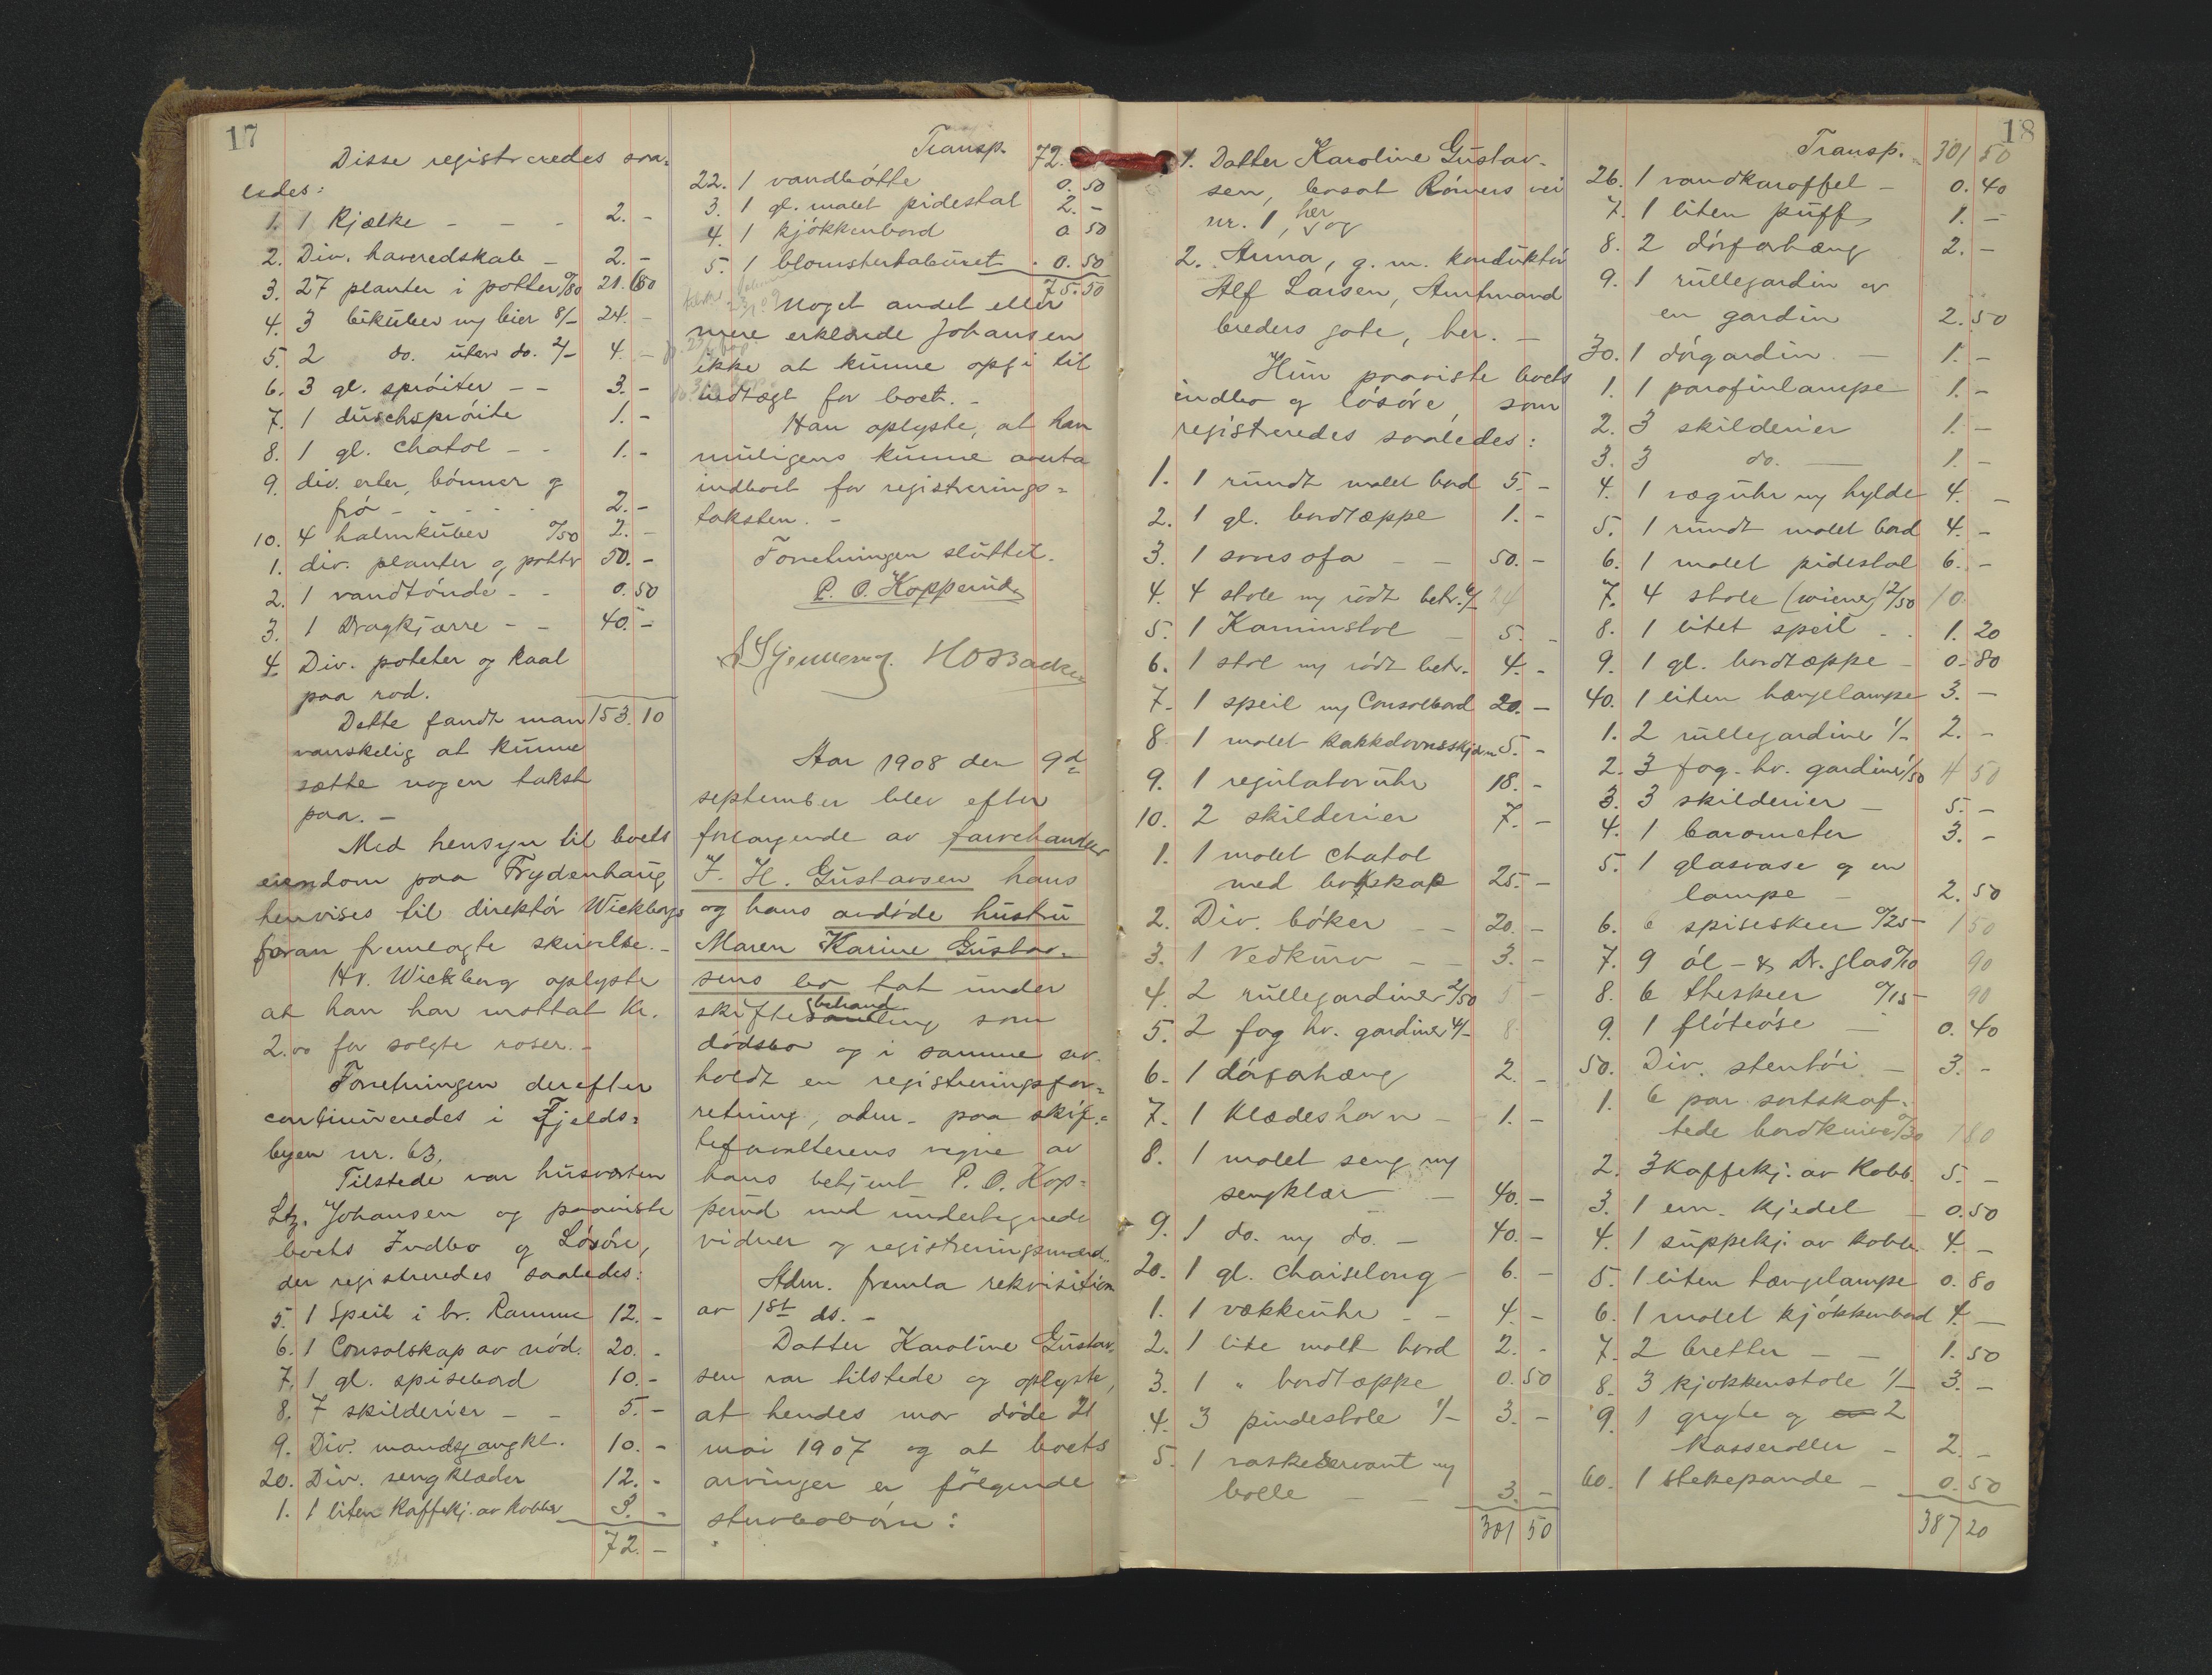 17
Disse registreredes saa-
ledes:
1. 1 Kjælke - - - 2. -
2. Div. haveredskab - 2. -
3. 27 planter i potter 0/80 21.60
4. 3 bikuber m/ bier 8/- 24. -
5. 2 do. uten do. 2/- 4. -
6. 3 gl. sprøiter - - 3. -
7. 1 duschsprøite 1. -
8. 1 gl. chatol - - 1. -
9. div. erter, bønner og
frø - - - - 2. -
10. 4 halmkuber 0/50 2. -
1. div. planter og potter 50. -
2. 1 vandtønde - - 0.50
3. 1 Dragkjærre - - 40. -
4. Div. poteter og kaal
paa rod.
Dette fandt man 153.10
vanskelig at kunne
sætte nogen takst
paa. -
Med hensyn til boets
eiendom paa Frydenhaug
henvises til direktør Wickbergs
foran fremlagte skrivelse. -
Hr. Wickberg oplyste
at han har mottat kr.
2.00 for solgte roser. -
Forretningen derefter
continueredes i Fjelds-
byen nr. 63.
Tilstede var husværten
Johansen og paaviste
boets Indbo og Løsøre,
der registreredes saaledes:
5. 1 Speil i br. Ramme 12. -
6. 1 Consolskap av nød. 20. -
7. 1 gl. spisebord 10. -
8. 7 skilderier - - 5. -
9. Div. mandsgangkl. 10. -
20. Div. sengklæder 12. -
1. 1 liten Kaffekj. av kobber 3. -
72. -
Transp. 72.
22. 1 vandbøtte 0.50
3. 1 gl. malet pidestal 2. -
4. 1 kjøkkenbord 0.50
5. 1 blomstertabouret - 0.50
75.50
Noget andet eller
mere erklærede Johansen
ikke at kunne opgi til
indtægt for boet. -
Han oplyste, at han
muligens kunne overta
indboet for registrerings-
taksten. -
Forretningen sluttet.
P. O. Kopperud
H O Backe
Aar 1908 den 9d
september blev efter
forlangende av farvehandler
J. H. Gustavsen hans
og hans avdøde hustru
Maren Karine Gustav-
sens bo tat under
skiftebehandling som
dødsbo og i samme av-
holdt en registreringsfor-
retning, adm. paa skif-
teforvalterens vegne av
hans betjent P. O. Kop-
perud med undertegnede
vidner og registreringsmænd.
Adm. fremla rekvisition
av 1st ds. -
Datter Karoline Gustav-
sen var tilstede og oplyste,
at hendes mor døde 21
mai 1907 og at boets
arvinger er følgende
stervbobørn:
18
1. Datter Karoline Gustav-
sen, bosat Rømers vei
nr. 1, her og
2. Anna, g. m. konduktør
Alf Larsen, Amtmand
breders gate, her. -
Hun paaviste boets
indbo og løsøre, som
registreredes saaledes:
1. 1 rundt malet bord 5. -
2. 1 gl. bordtæppe 1. -
3. 1 sovsofa - - 50. -
4. 4 stole m/ rødt betr. 6/- 24
5. 1 Kaminstol - 5. -
6. 1 stol m/ rødt betr. 4. -
7. 1 speil m/ Consolbord 20. -
8. 1 malet kakkelovnsskjærm 5. -
9. 1 regulatoruhr 18. -
10. 2 skilderier 7. -
1. 1 malet chatol
med bokskap 25. -
2. Div. bøker - - 20. -
3. 1 Vedkurv - - 3. -
4. 2 rullegardiner 2/50 5 -
5. 2 fag hv. gardiner 4/- 8
6. 1 dørforhæng 2. -
7. 1 Klædeshavn - 1. -
8. 1 malet seng m/
sengklær - 40. -
9. 1 do. m/ do. - 40. -
20. 1 gl. Chaiselong - 6. -
1. 1 vækkeuhr - - 4. -
2. 1 lite malt bord 2. -
3. 1 " bordtæppe 0.50
4. 3 pindestole 1/- 3. -
5. 1 vaskeservant m/
bolle - - 3. -
301 50
Transp. 301 50
26. 1 vandkaraffel - 0.40
7. 1 liten puff 1. -
8. 2 dørforhæng 2. -
9. 1 rullegardin og
en gardin 2.50
30. 1 dørgardin - 1. -
1. 1 parafinlampe 1. -
2. 3 skilderier 1. -
3. 3 do. - 1. -
4. 1 væguhr m/ hylde 4. -
5. 1 rundt malet bord 4. -
6. 1 malet pidestal 6. -
7. 4 stole (wiener) 2/50 10.
8. 1 litet speil - - 1.20
9. 1 gl. bordtæppe - 0.80
40. 1 liten hængelampe 3. -
1. 2 rullegardiner 1/- 2. -
2. 3 fag. hv. gardiner 1/50 4 50
3. 3 skilderier - 5. -
4. 1 barometer 3. -
5. 1 glasvase og en
lampe - 2.50
6. 6 spiseskeer 0/25 1 50
7. 9 øl- & Dr. glas 0/10 90
8. 6 theskeer 0/15 90
9. 1 fløteøse - 0.40
50. Div. stentøi - 3. -
1. 6 par sortskaf-
tede bordkniver 0/30 1 80
2. 3 Kaffekj. av Kobb. 5. -
3. 1 em. Kjedel - 0.50
4. 1 suppekj. av kobber 4. -
5. 1 liten hængelampe 0.80
6. 1 malet kjøkkenbord 4. -
7. 2 bretter - - 1.50
8. 3 kjøkkenstole 1/- 3. -
9. 1 gryte og 2
Kasseroller - 2. -
60. 1 stekepande - 0.50
387 20